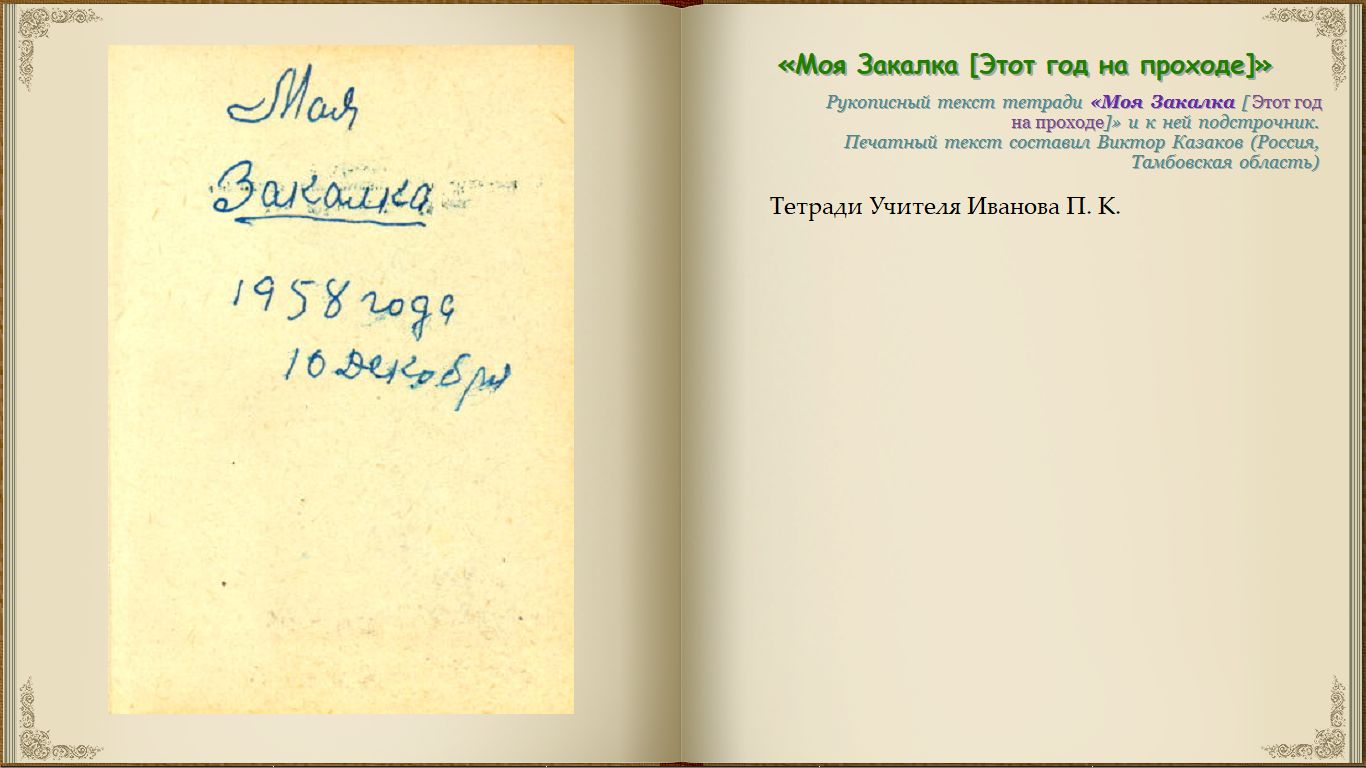 Моя
Закалка
1958 года
10 Декобря
«Моя Закалка [Этот год на проходе]»
Рукописный текст тетради «Моя Закалка [Этот год
на проходе]» и к ней подстрочник.
Печатный текст составил Виктор Казаков (Россия,
Тамбовская область)
Тетради Учителя Иванова П. К.